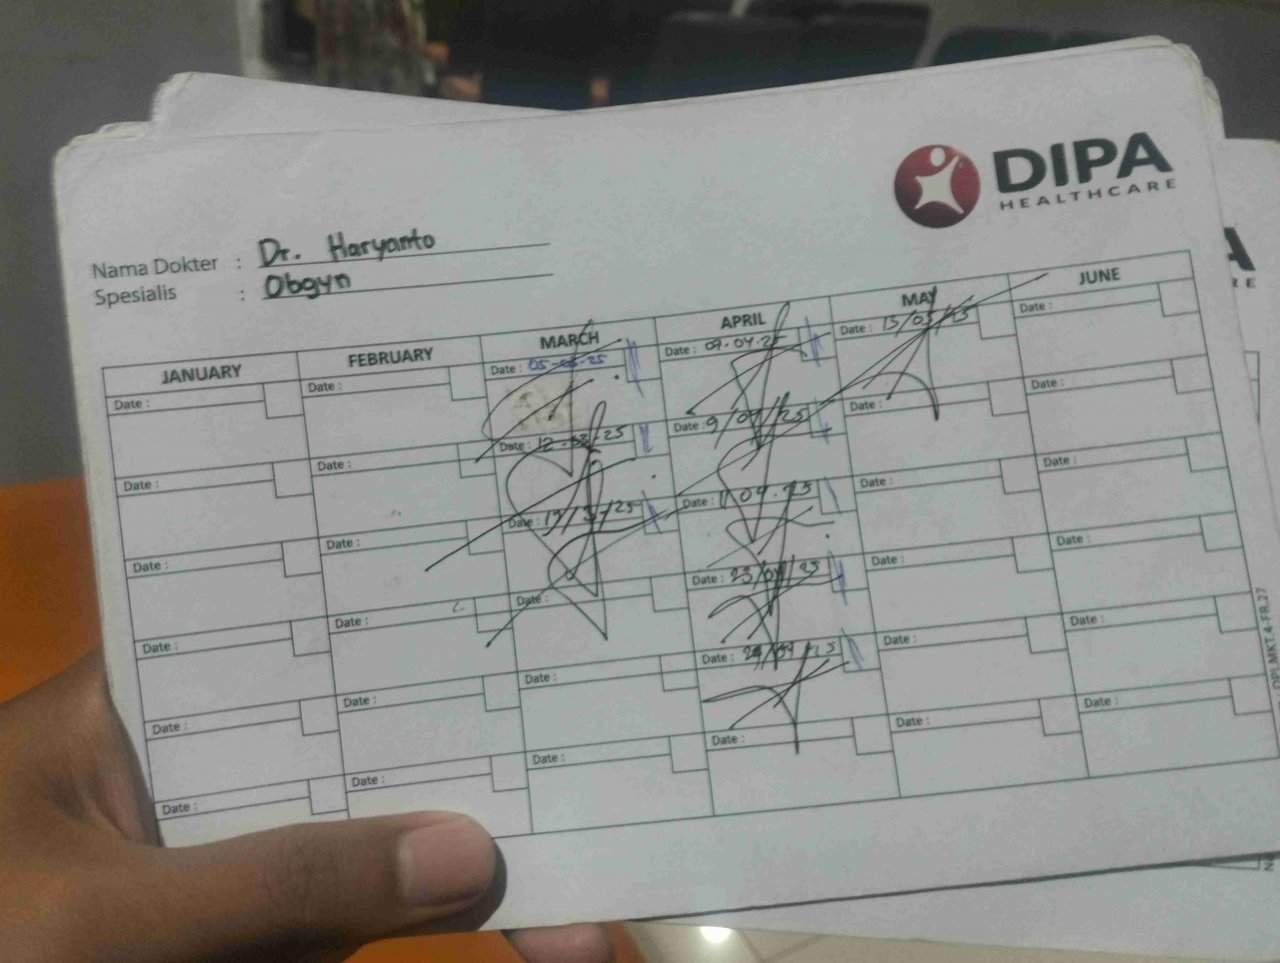 DIPA
HEALTHCARE
Nama Dokter : Dr. Haryanto
Spesialis : Obgyn
JANUARY FEBRUARY MARCH APRIL MAY JUNE
Date : Date : Date : 05-03-25 Date : 09.04.25 Date : 13/05/25 Date :
Date : Date : Date : 12-03-25 Date : 9/04/25 Date : Date :
Date : Date : Date : 19/3/25 Date : Date : Date :
Date : Date : Date : Date : 23/04/25 Date : Date :
Date : Date : Date : Date : Date : Date :
Date : Date : Date : Date : Date : Date :